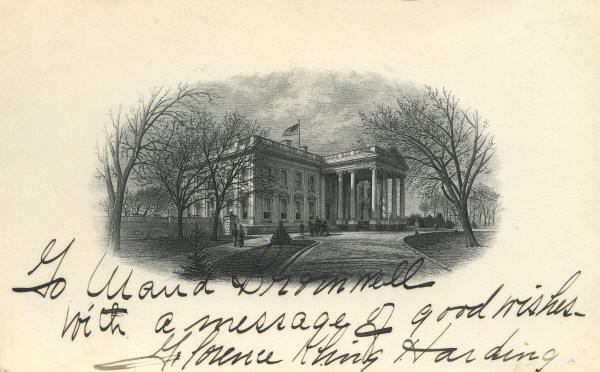 To Maud Bromwell
with a message of good wishes-
Florence Kling Harding